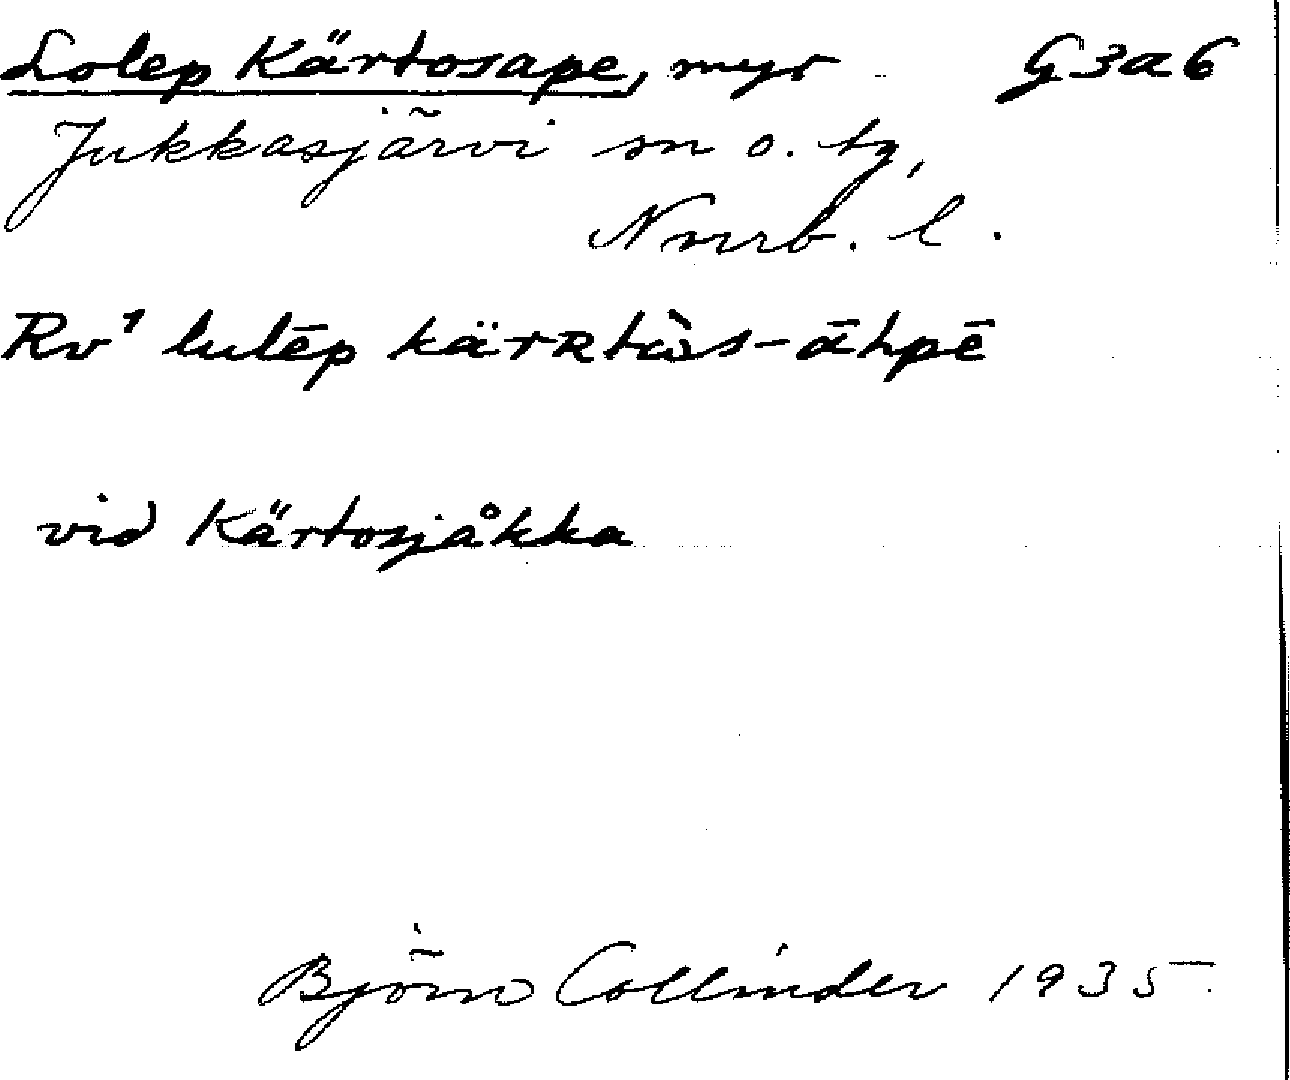 Lolep Kärtosape, myr G3a6
Jukkasjärvi sn o. tg,
Nnrb. l.
Rv¹ lulēp kärRtὰs-āhpē
vid Kärtosjåkka
Björn Collinder 1935